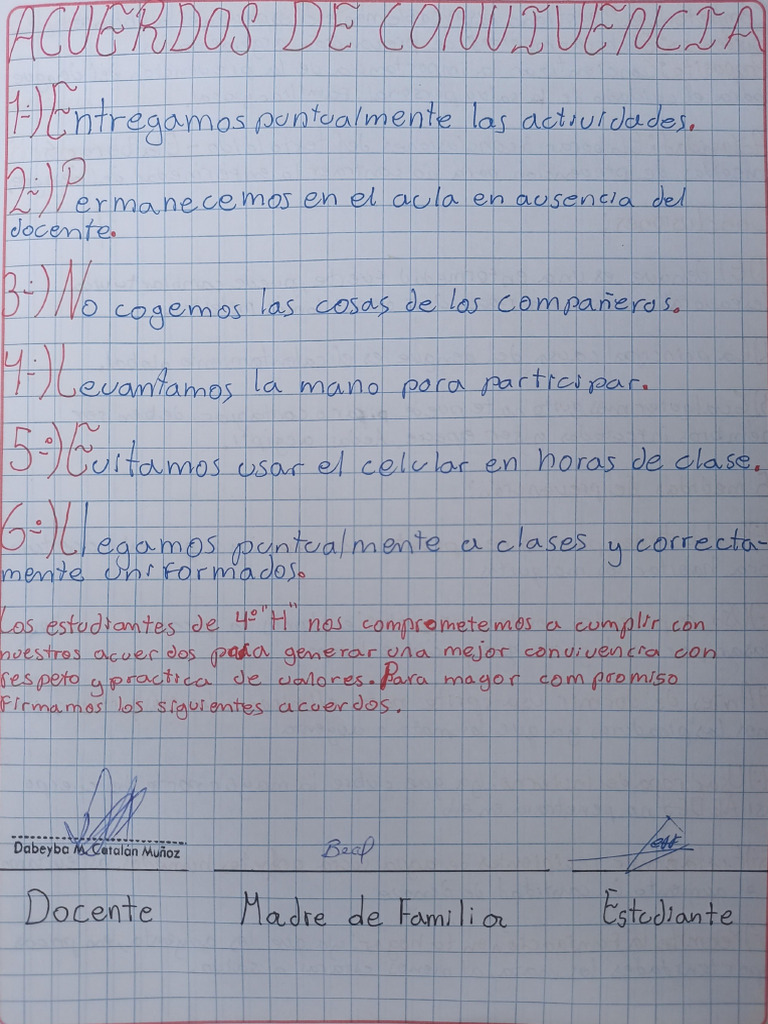 ACUERDOS DE CONVIVENCIA
1÷) Entregamos puntualmente las actividades.
2÷) Permanecemos en el aula en ausencia del
docente.
3÷) No cogemos las cosas de los compañeros.
4÷) Levantamos la mano para participar.
5÷) Evitamos usar el celular en horas de clase.
6÷) Llegamos puntualmente a clases y correcta-
mente uniformados.
Los estudiantes de 4º "H" nos comprometemos a cumplir con
nuestros acuerdos para generar una mejor convivencia con
respeto y practica de valores. Para mayor compromiso
firmamos los siguientes acuerdos.
Dabeyba M. Catalán Muñoz
Docente Madre de Familia Estudiante